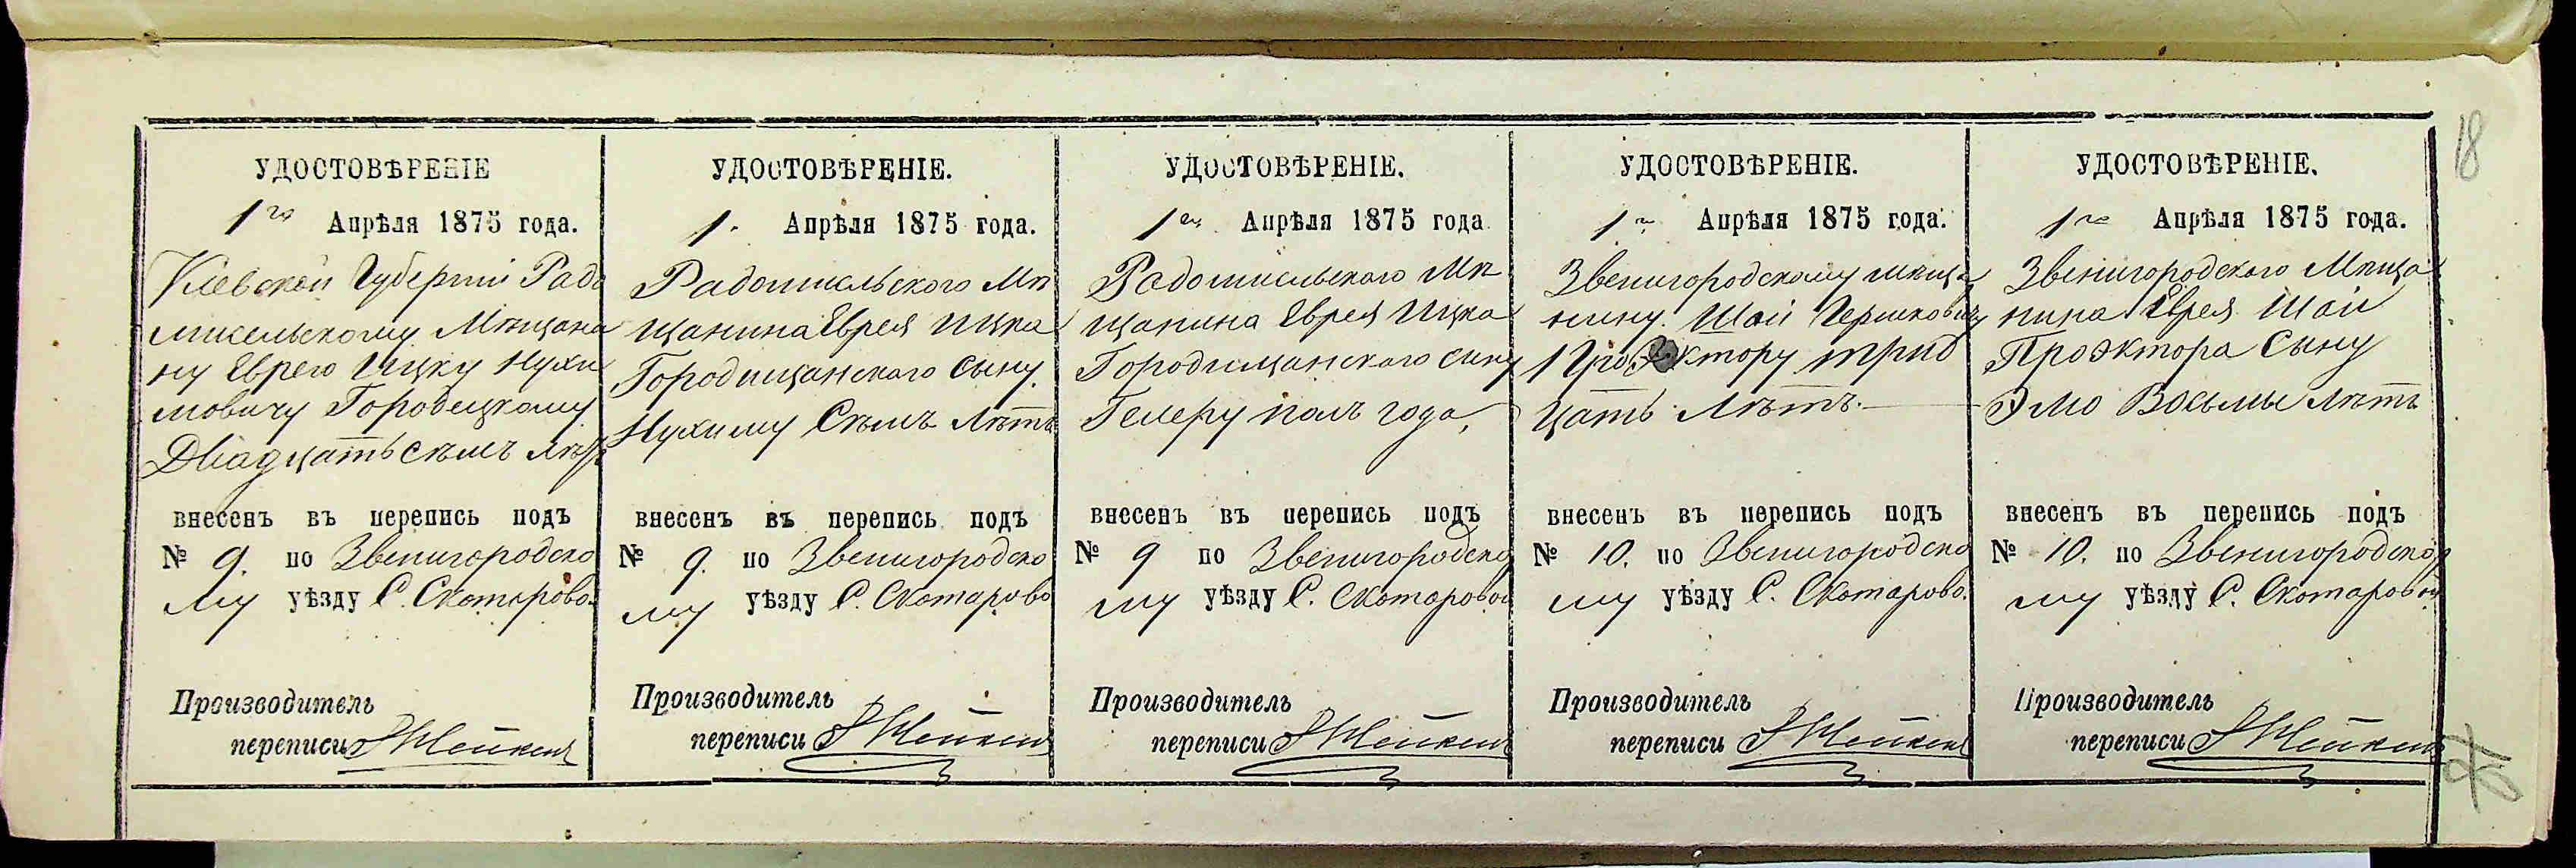 18
УДОСТОВѢРЕНІЕ
1го Апрѣля 1875 года.
Кіевской Губерніи Радо
мисельскому Мѣщани
ну Еврею Ицку Нухи
мовичу Городецкому
Двадцать семъ лѣтъ
внесенъ въ перепись подъ
№ 9. по Звенигородско
му уѣзду С. Скотарево.
Производитель
переписи
УДОСТОВѢРЕНІЕ.
1. Апрѣля 1875 года.
Радомисльского Мѣ
щанина Еврея Ицка
Городищанского сыну
Нухиму Семъ лѣтъ
внесенъ въ перепись подъ
№ 9. по Звенигородско
му уѣзду С. Скотарово
Производитель
переписи
УДОСТОВѢРЕНІЕ.
1го Апрѣля 1875 года
Радомисльского Мѣ
щанина Еврея Ицка
Городищанского сыну
Гелеру полъ года,
внесенъ въ перепись подъ
№ 9 по Звенигородско
му уѣзду С. Скотаровой
Производитель
переписи
УДОСТОВѢРЕНІЕ.
1го Апрѣля 1875 года.
Звенигородскому мѣща
нину. Шаи Гершковичу
Проэктору трид
цать лѣтъ.
внесенъ въ перепись подъ
№ 10. по Звенигородско
му уѣзду С. Скотарово.
Производитель
переписи
УДОСТОВѢРЕНІЕ.
1го Апрѣля 1875 года.
Звенигородского Мѣща
нина Еврея Шаи
Проэктора Сыну
Элю Восьмы лѣтъ
внесенъ въ перепись подъ
№ 10. по Звенигородско
му уѣзду С. Скотаровой
Производитель
переписи